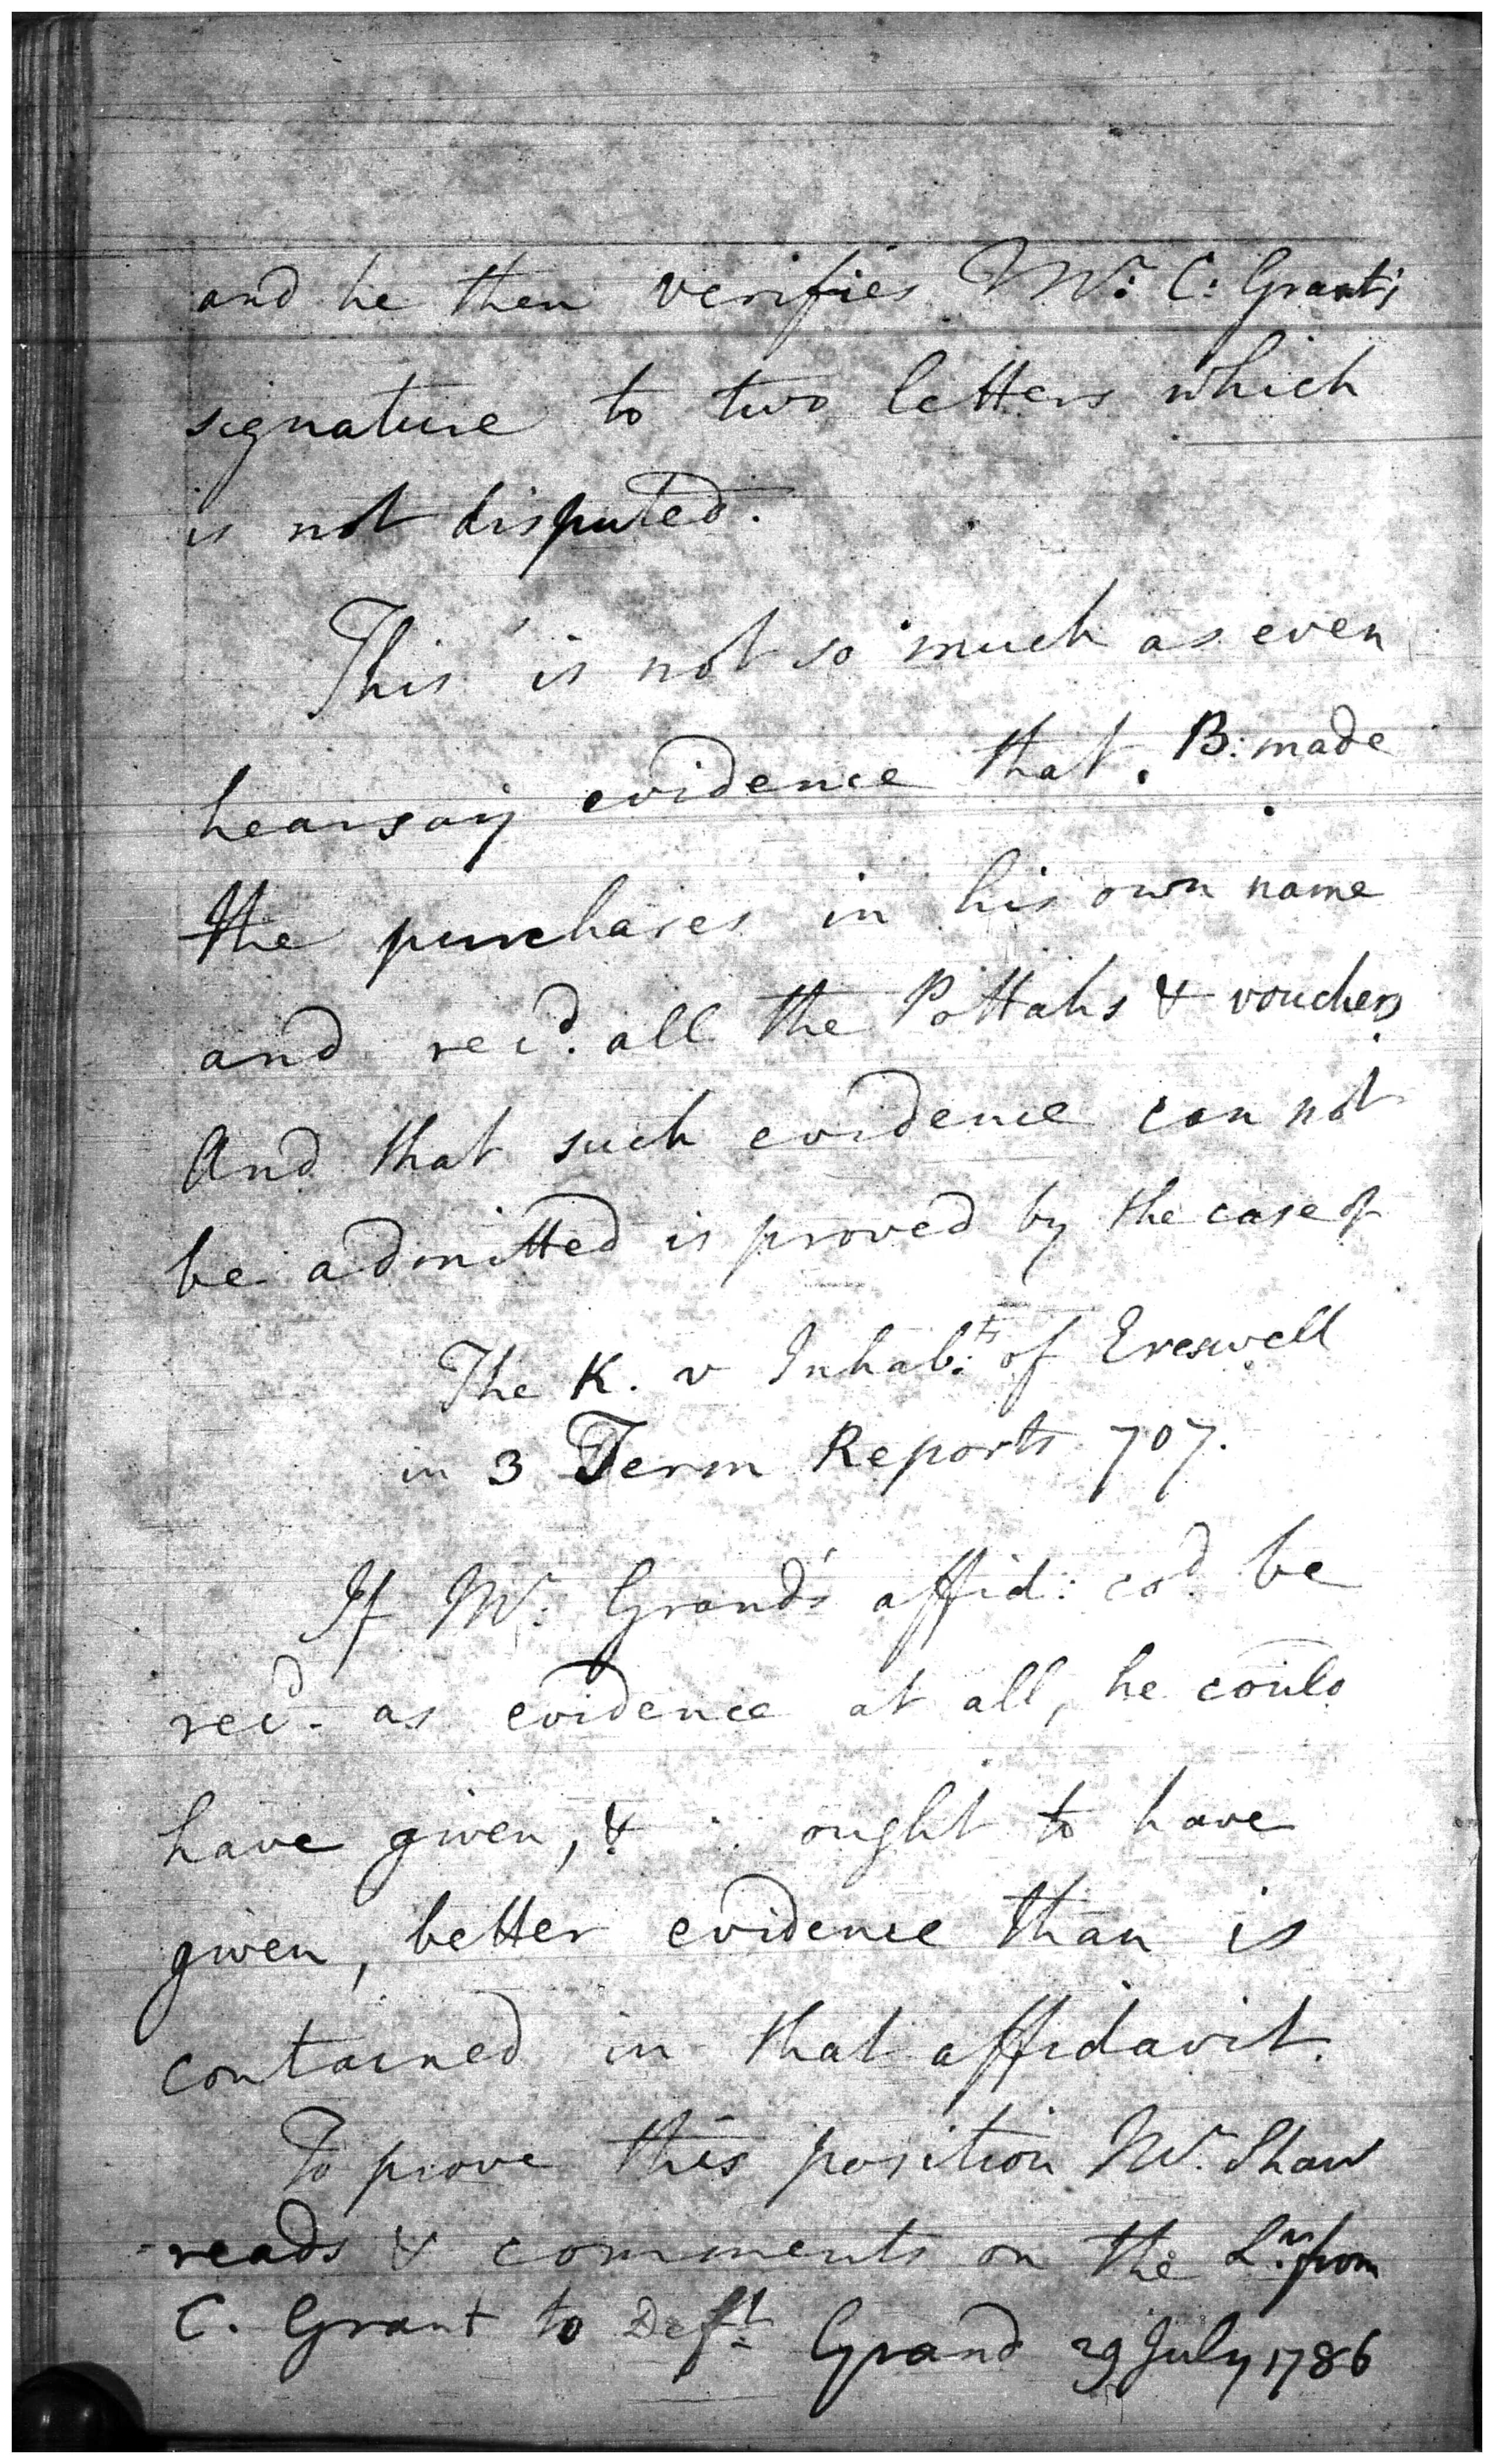 and he then verifies Mr: C: Grant's
signature to two letters which
is not disputed.
This is not so much as even
hearsay evidence that B: made
the purchases in his own name
and recd. all the Pottahs & vouchers
And that such evidence can not
be admitted is proved by the case of
The K. v Inhabts: of Ereswell
in 3 Term Reports 707.
If Mr: Grand's affid: cod be
recd. as evidence at all, he could
have given, & ought to have
given, better evidence than is
contained in that affidavit.
To prove this position Mr. Shaw
reads & comments on the Lr. from
C. Grant to Deft. Grand 29 July 1786